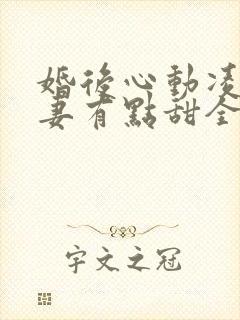 婚後心動凌
妻有點甜全
宇文之冠